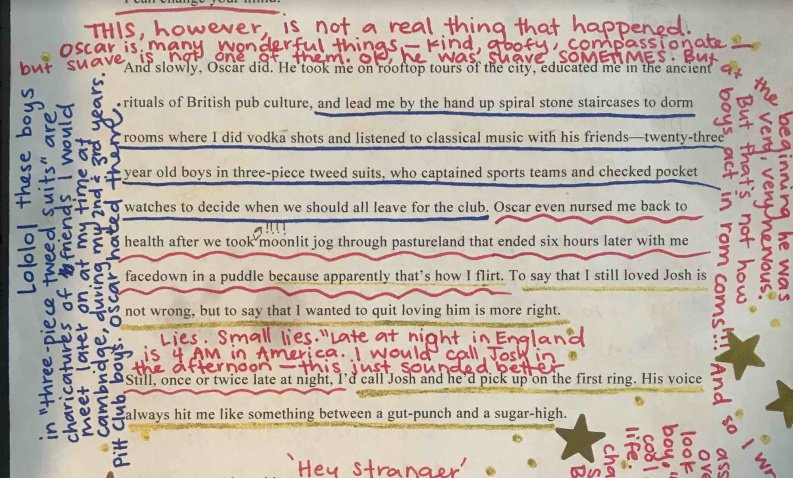 I can change your mind.
THIS, however, is not a real thing that happened.
Oscar is many wonderful things — kind, goofy, compassionate —
but suave is not one of them. Ok, he was suave SOMETIMES. But
at the beginning he was
the very, very nervous.
But that's not how
boys act in rom coms!!! And so I wr
And slowly, Oscar did. He took me on rooftop tours of the city, educated me in the ancient
rituals of British pub culture, and lead me by the hand up spiral stone staircases to dorm
rooms where I did vodka shots and listened to classical music with his friends—twenty-three
year old boys in three-piece tweed suits, who captained sports teams and checked pocket
watches to decide when we should all leave for the club. Oscar even nursed me back to
a!!!!
health after we took moonlit jog through pastureland that ended six hours later with me
facedown in a puddle because apparently that's how I flirt. To say that I still loved Josh is
not wrong, but to say that I wanted to quit loving him is more right.
Lies. Small lies. "Late at night in England
is 4 AM in America. I would call Josh in
the afternoon — this just sounded better
Still, once or twice late at night, I'd call Josh and he'd pick up on the first ring. His voice
always hit me like something between a gut-punch and a sugar-high.
'Hey stranger'
Lololol these boys
in "three-piece tweed suits" are
charicatures of friends I would
meet later on at my time at
Cambridge, during my 2nd & 3rd years.
Pitt Club boys. Oscar hated them.
ass
ove
look
boy,
cool
life.
cha
S
B